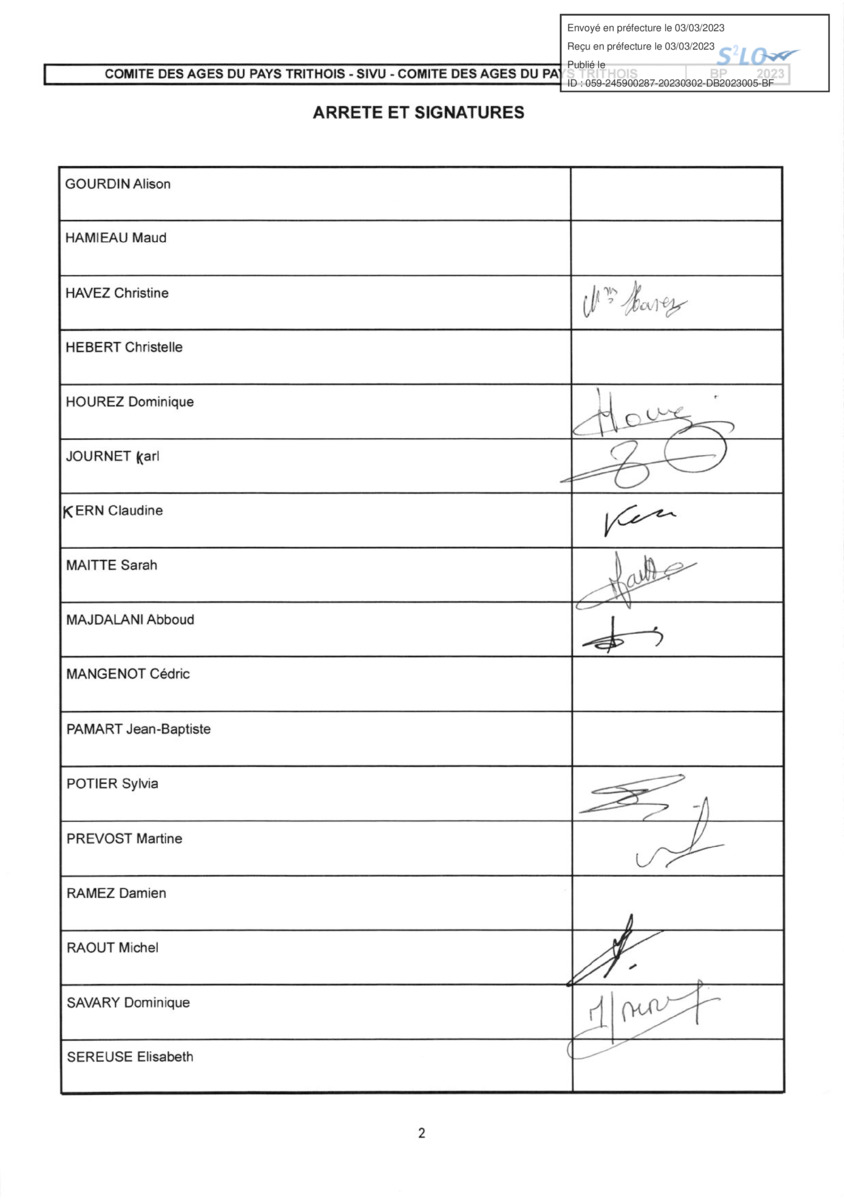 Envoyé en préfecture le 03/03/2023
Reçu en préfecture le 03/03/2023
S²LO
Publié le
ID : 059-245900287-20230302-DB2023005-BF
COMITE DES AGES DU PAYS TRITHOIS - SIVU - COMITE DES AGES DU PAYS TRITHOIS BP 2023
ARRETE ET SIGNATURES
GOURDIN Alison
HAMIEAU Maud
HAVEZ Christine Mme Havez
HEBERT Christelle
HOUREZ Dominique
JOURNET Karl
KERN Claudine Kern
MAITTE Sarah
MAJDALANI Abboud
MANGENOT Cédric
PAMART Jean-Baptiste
POTIER Sylvia
PREVOST Martine
RAMEZ Damien
RAOUT Michel
SAVARY Dominique
SEREUSE Elisabeth
2